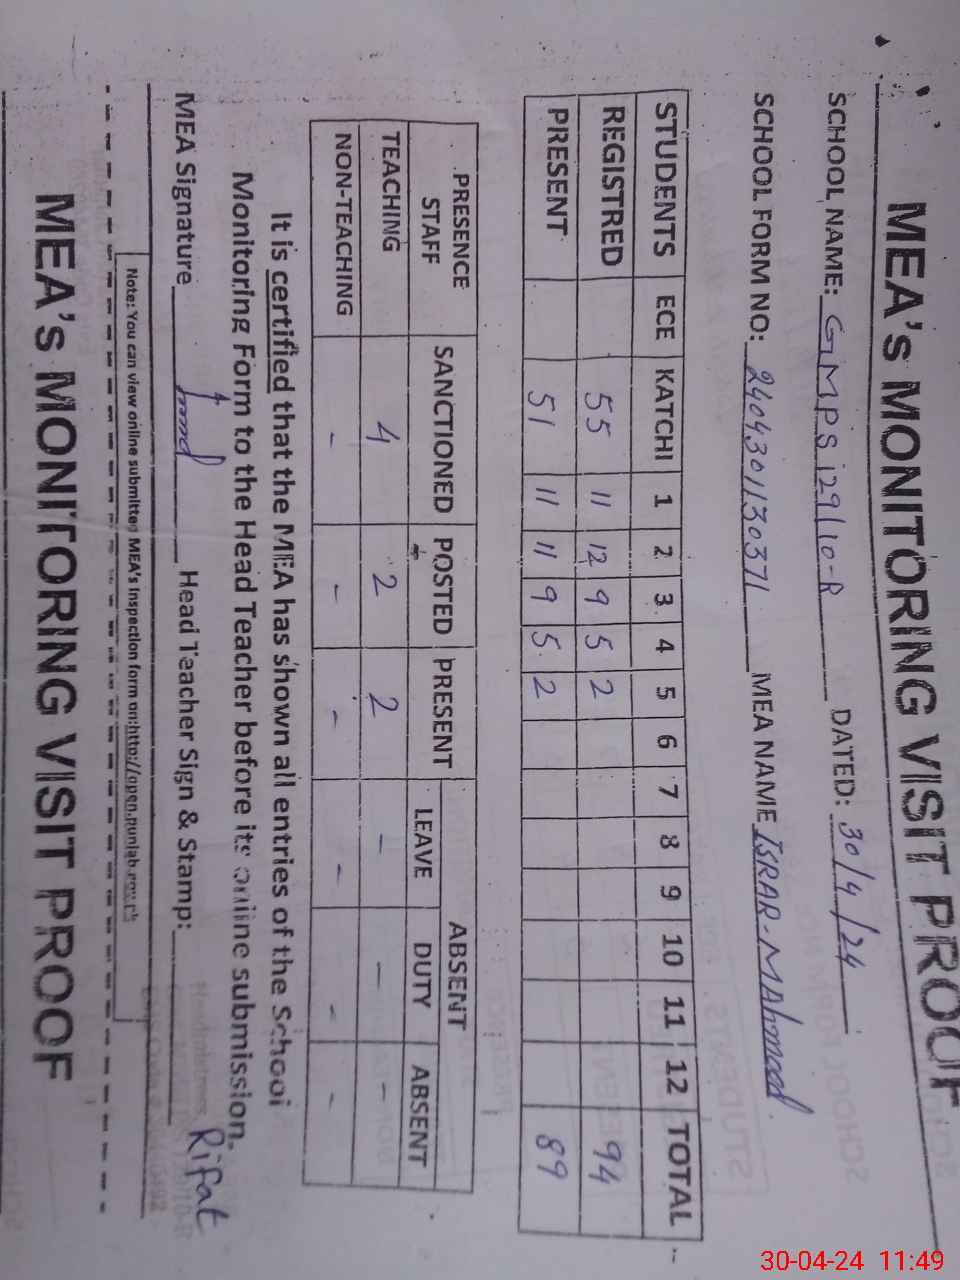 MEA's MONITORING VISIT PROOF
SCHOOL NAME: GMPS 129/10-R DATED: 30/4/24
SCHOOL FORM NO: 2404301130371 MEA NAME ISRAR-MAhmood
STUDENTS ECE KATCHI 1 2 3 4 5 6 7 8 9 10 11 12 TOTAL
REGISTRED 55 11 12 9 5 2 94
PRESENT 51 11 11 9 5 2 89
PRESENCE STAFF SANCTIONED POSTED PRESENT ABSENT
LEAVE DUTY ABSENT
TEACHING 4 2 2 - - -
NON-TEACHING - - - - - -
It is certified that the MEA has shown all entries of the School
Monitoring Form to the Head Teacher before its online submission.
MEA Signature Head Teacher Sign & Stamp: Rifat
Note: You can view online submitted MEA's Inspection form on:http://open.punjab.gov.pk
MEA's MONITORING VISIT PROOF
30-04-24 11:49